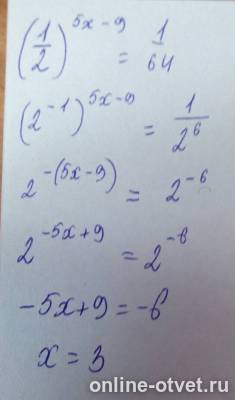 (1/2)^(5x-9) = 1/64
(2^(-1))^(5x-9) = 1/2^6
2^(-(5x-9)) = 2^(-6)
2^(-5x+9) = 2^(-6)
-5x+9=-6
x=3
online-otvet.ru